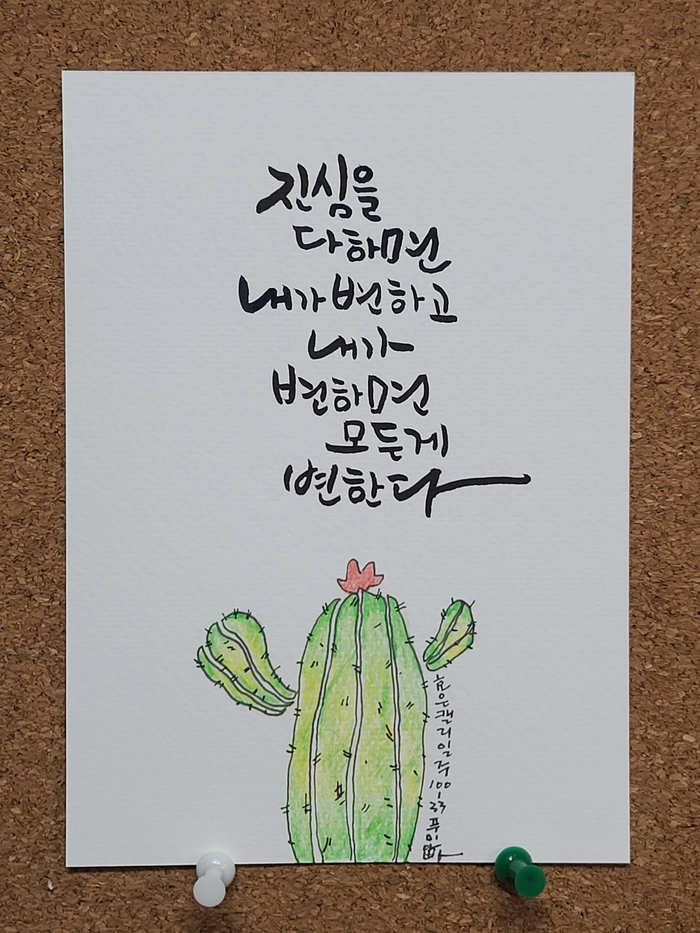 진심을
다하면
내가 변하고
내가
변하면
모든게
변한다
캘리일주100